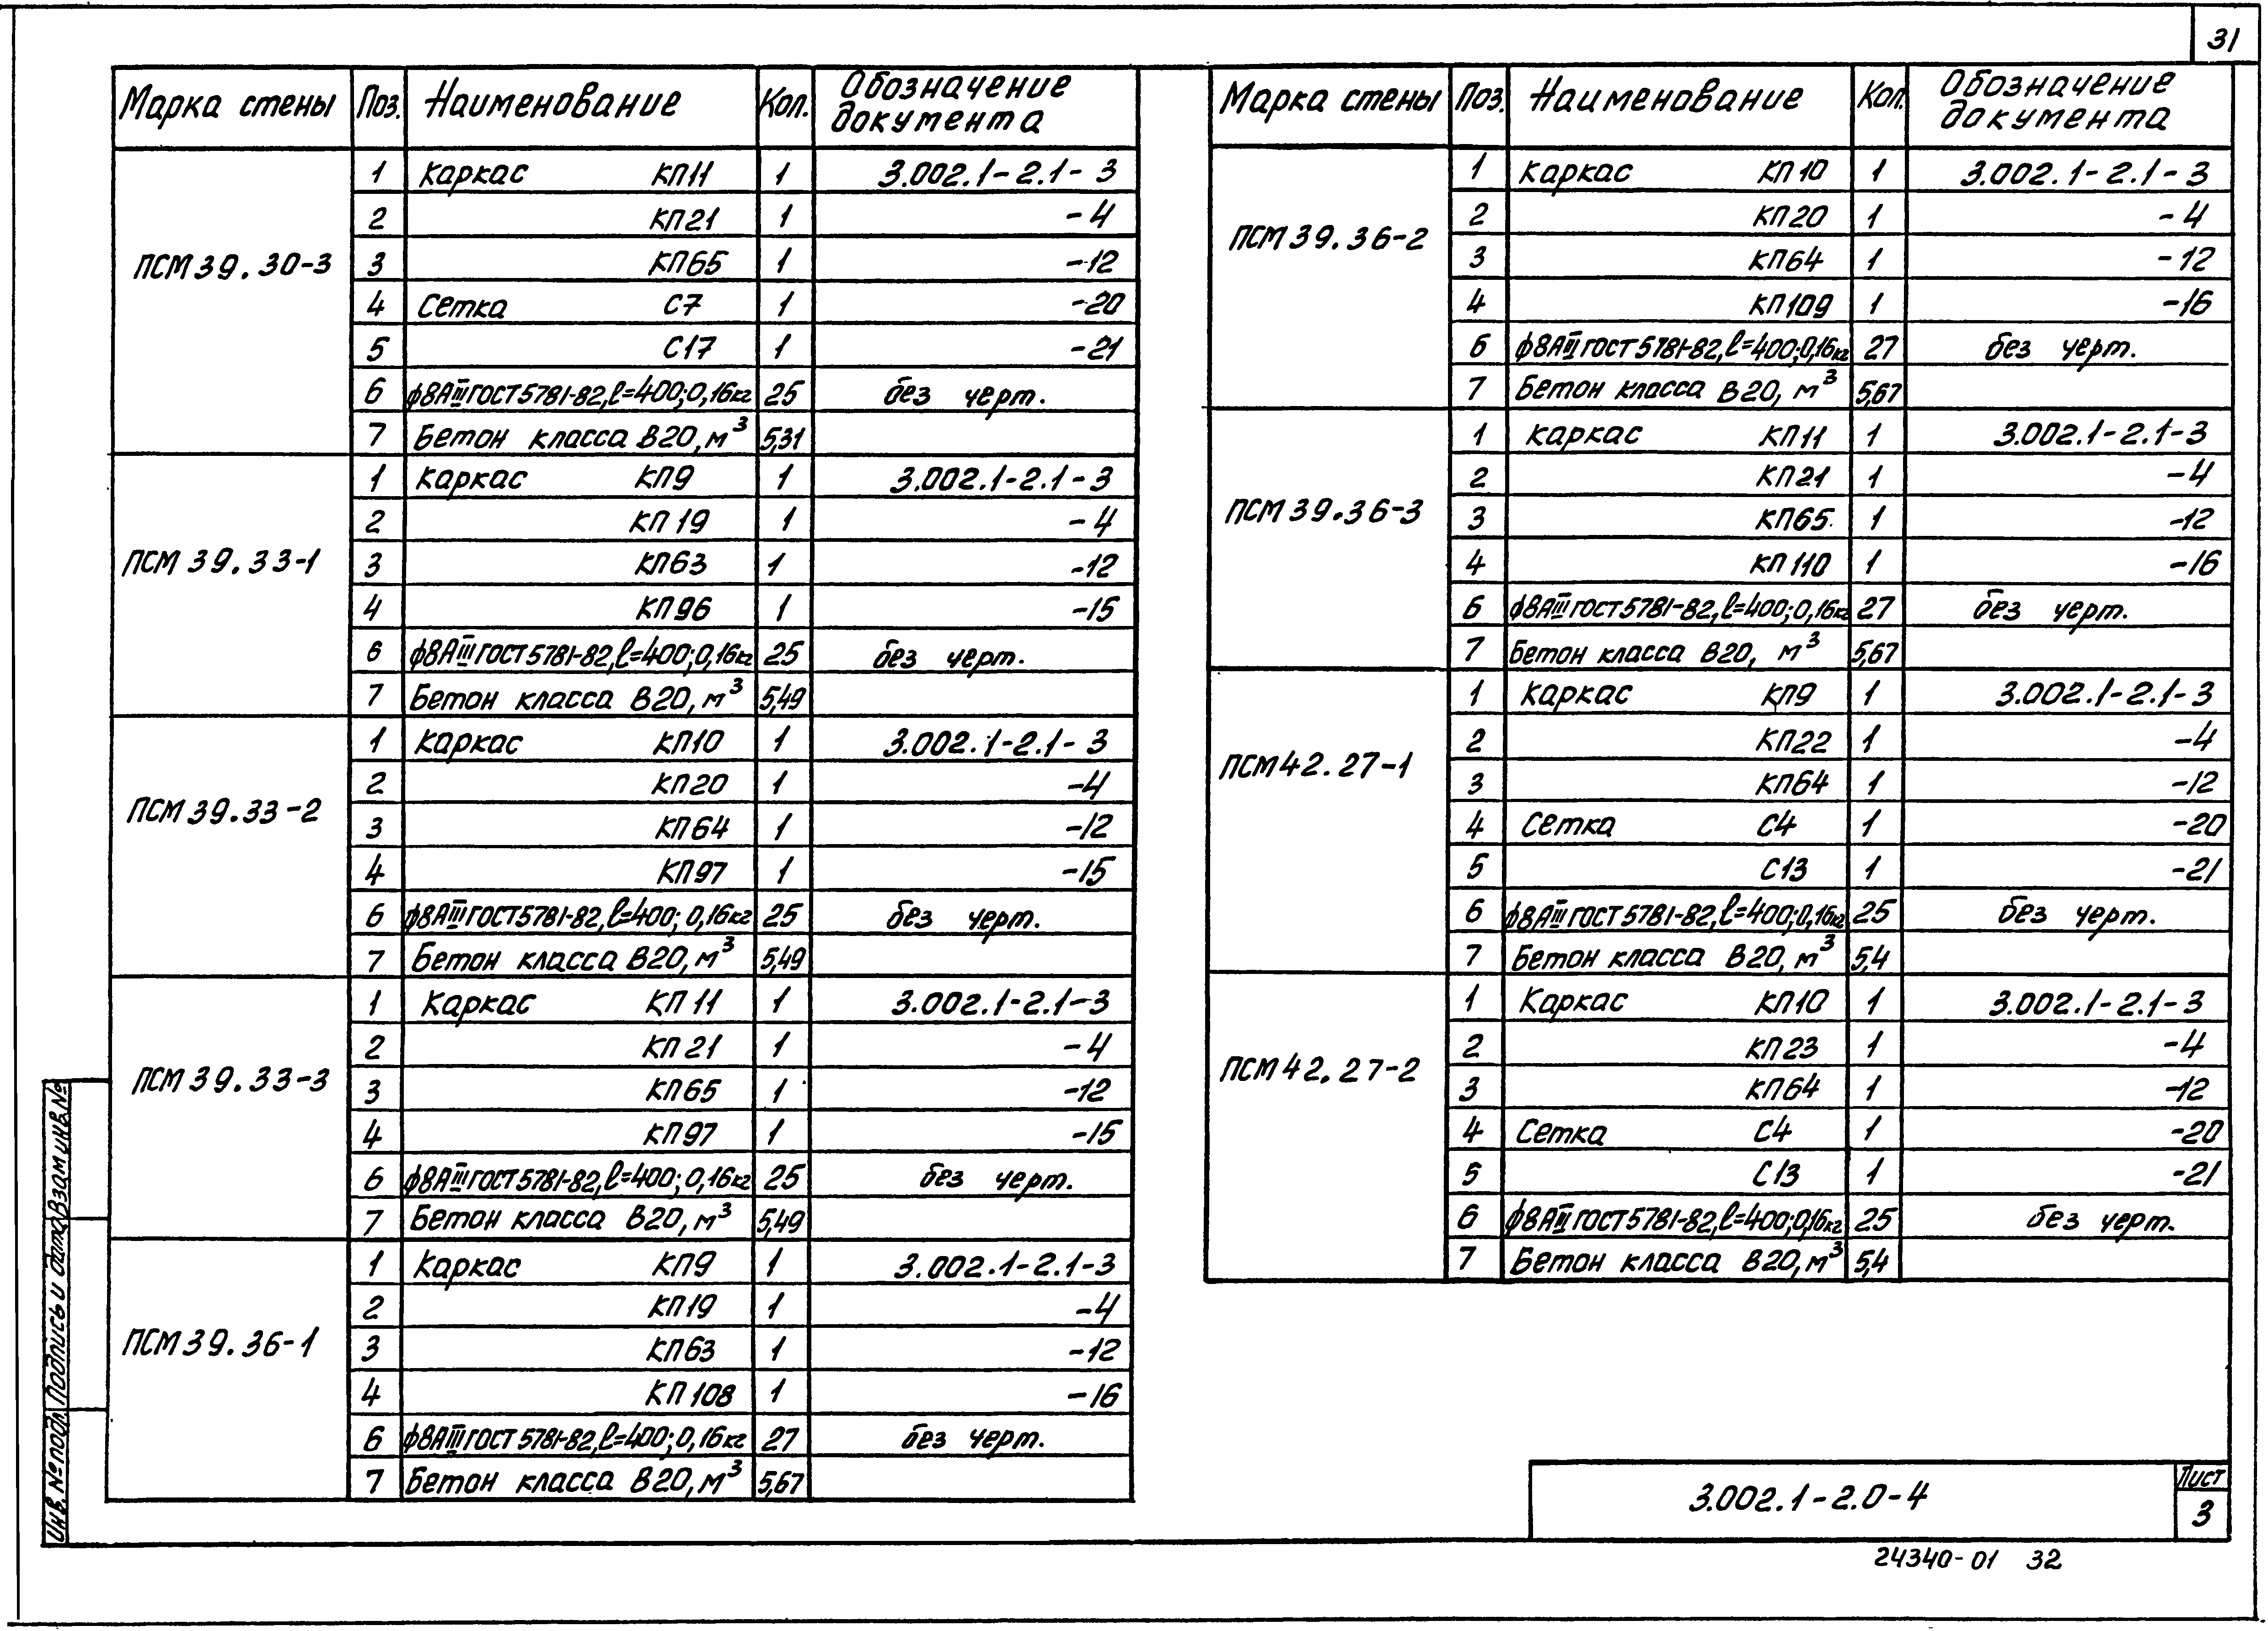 31
Марка стены Поз. Наименование Кол. Обозначение документа
ПСМ 39.30-3
1 Каркас КП11 1 3.002.1-2.1-3
2 КП21 1 -4
3 КП65 1 -12
4 Сетка С7 1 -20
5 С17 1 -21
6 ф8АIII ГОСТ 5781-82, ℓ=400; 0,16кг 25 без черт.
7 Бетон класса В20, м³ 5,31
ПСМ 39.33-1
1 Каркас КП9 1 3.002.1-2.1-3
2 КП19 1 -4
3 КП63 1 -12
4 КП96 1 -15
6 ф8АIII ГОСТ 5781-82, ℓ=400; 0,16кг 25 без черт.
7 Бетон класса В20, м³ 5,49
ПСМ 39.33-2
1 Каркас КП10 1 3.002.1-2.1-3
2 КП20 1 -4
3 КП64 1 -12
4 КП97 1 -15
6 ф8АIII ГОСТ 5781-82, ℓ=400; 0,16кг 25 без черт.
7 Бетон класса В20, м³ 5,49
ПСМ 39.33-3
1 Каркас КП11 1 3.002.1-2.1-3
2 КП21 1 -4
3 КП65 1 -12
4 КП97 1 -15
6 ф8АIII ГОСТ 5781-82, ℓ=400; 0,16кг 25 без черт.
7 Бетон класса В20, м³ 5,49
ПСМ 39.36-1
1 Каркас КП9 1 3.002.1-2.1-3
2 КП19 1 -4
3 КП63 1 -12
4 КП108 1 -16
6 ф8АIII ГОСТ 5781-82, ℓ=400; 0,16кг 27 без черт.
7 Бетон класса В20, м³ 5,67
Марка стены Поз. Наименование Кол. Обозначение документа
ПСМ 39.36-2
1 Каркас КП10 1 3.002.1-2.1-3
2 КП20 1 -4
3 КП64 1 -12
4 КП109 1 -16
6 ф8АIII ГОСТ 5781-82, ℓ=400; 0,16кг 27 без черт.
7 Бетон класса В20, м³ 5,67
ПСМ 39.36-3
1 Каркас КП11 1 3.002.1-2.1-3
2 КП21 1 -4
3 КП65 1 -12
4 КП110 1 -16
6 ф8АIII ГОСТ 5781-82, ℓ=400; 0,16кг 27 без черт.
7 Бетон класса В20, м³ 5,67
ПСМ 42.27-1
1 Каркас КП9 1 3.002.1-2.1-3
2 КП22 1 -4
3 КП64 1 -12
4 Сетка С4 1 -20
5 С13 1 -21
6 ф8АIII ГОСТ 5781-82, ℓ=400; 0,16кг 25 без черт.
7 Бетон класса В20, м³ 5,4
ПСМ 42.27-2
1 Каркас КП10 1 3.002.1-2.1-3
2 КП23 1 -4
3 КП64 1 -12
4 Сетка С4 1 -20
5 С13 1 -21
6 ф8АIII ГОСТ 5781-82, ℓ=400; 0,16кг 25 без черт.
7 Бетон класса В20, м³ 5,4
Инв. № подл. Подпись и дата Взам инв. №
3.002.1-2.0-4
Лист
3
24340-01 32